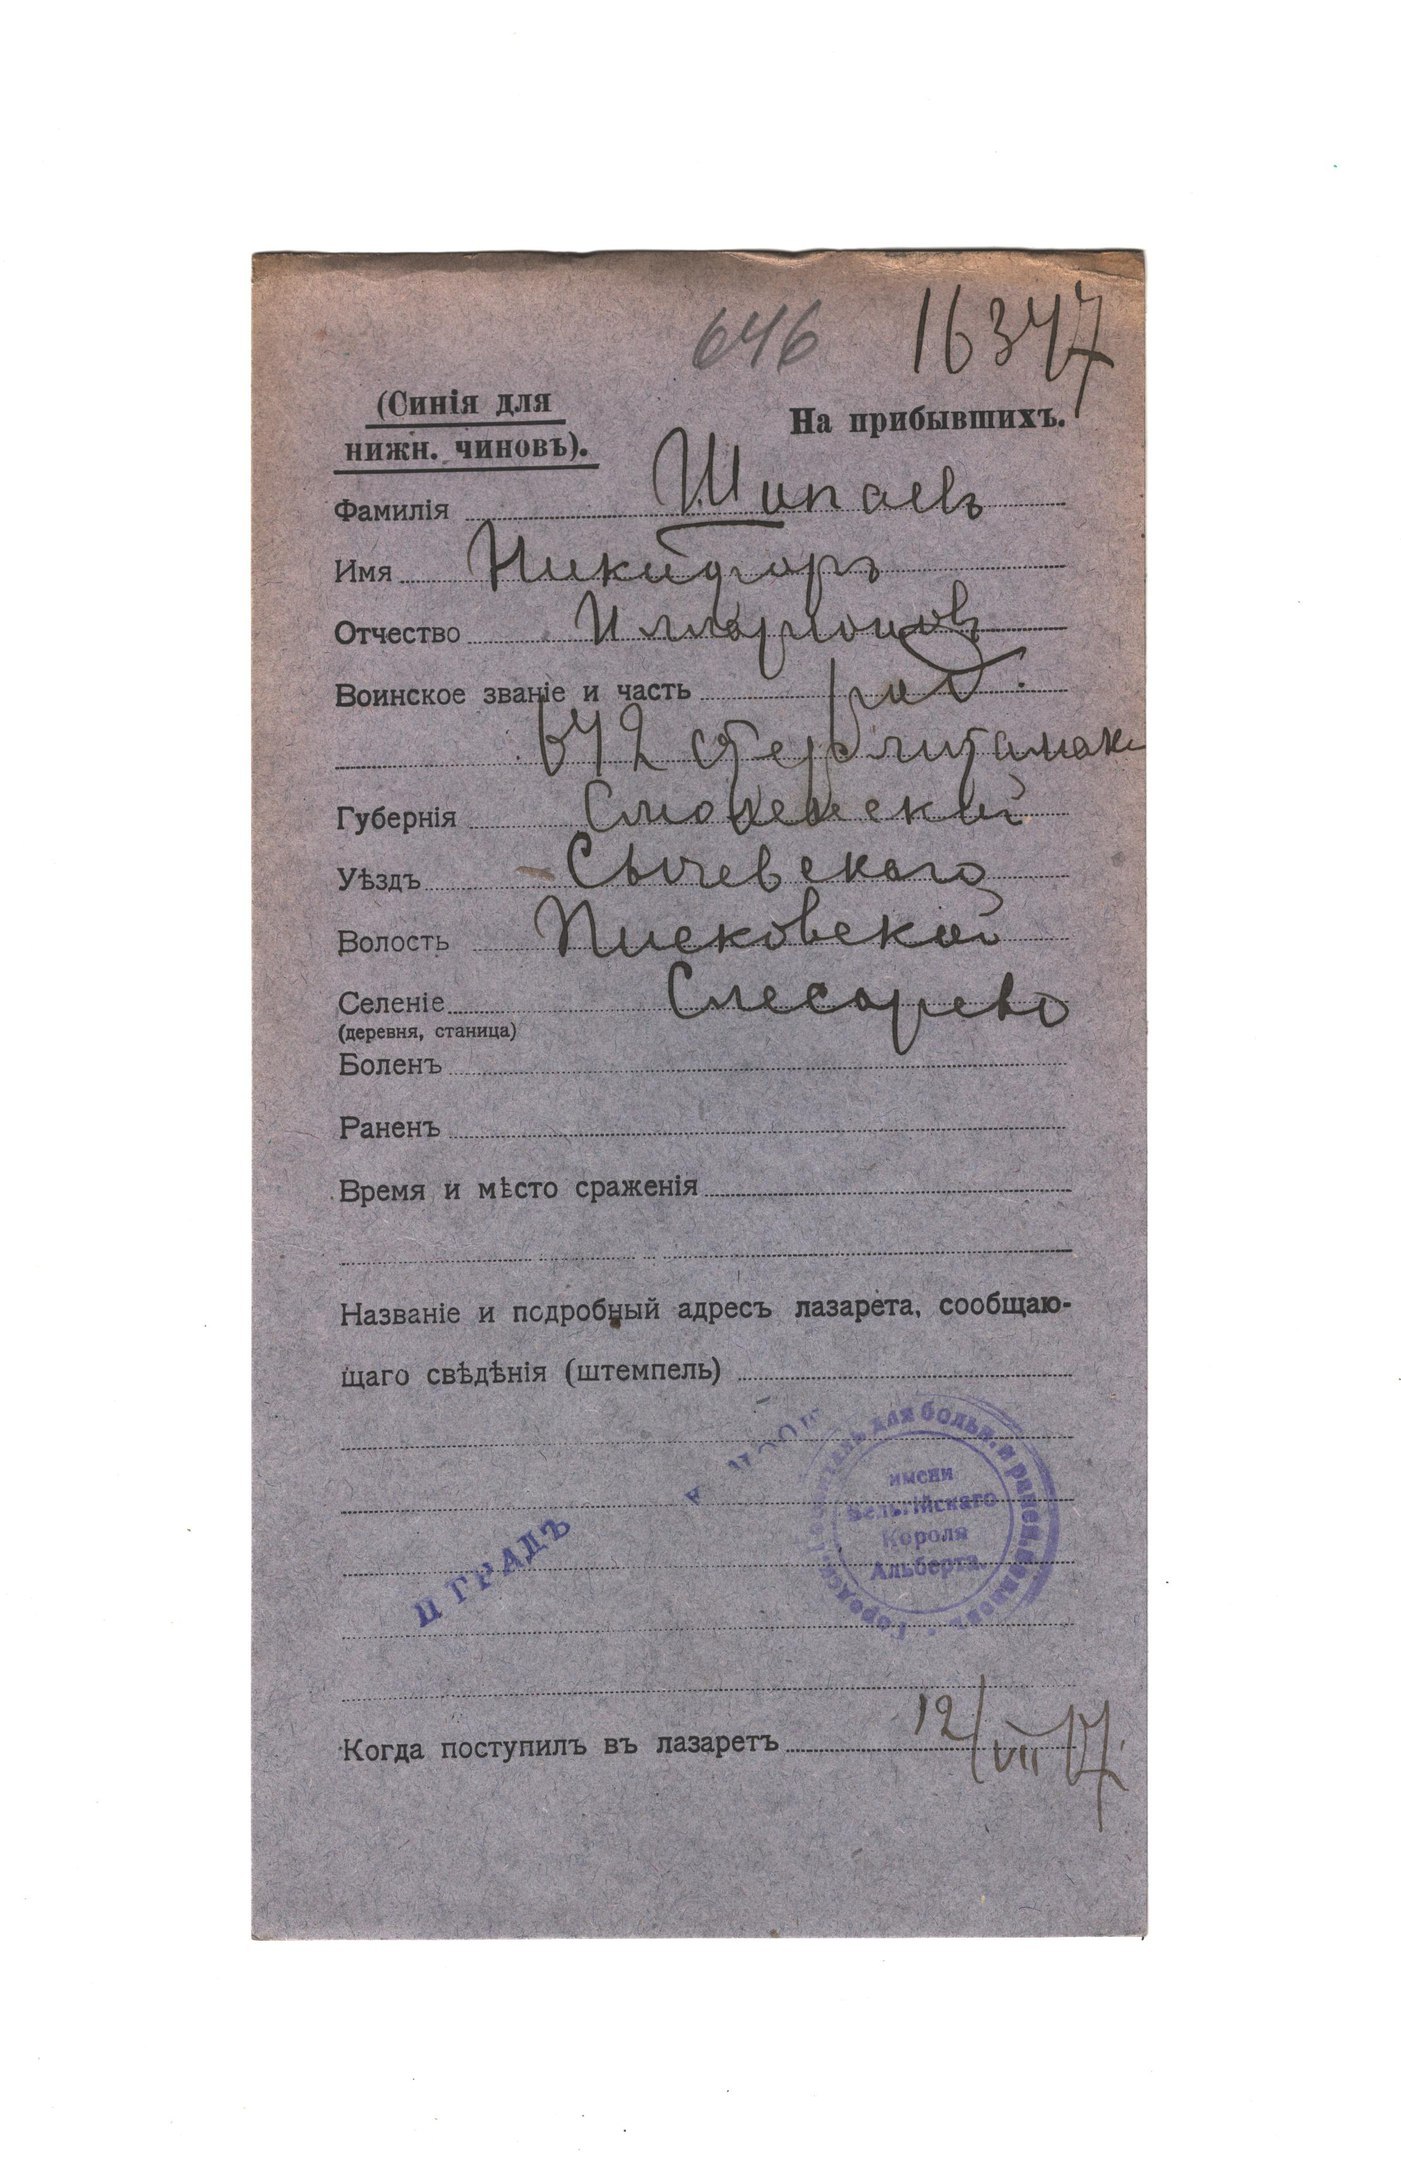 646 16347
(Синія для
нижн. чиновъ).
На прибывшихъ.
Фамилія Шипаевъ
Имя Никифоръ
Отчество Илларіоновъ
Воинское званіе и часть ряд.
642 Стерлитамак
Губернія Смоленской
Уѣздъ Сычевскаго
Волость Писковской
Селеніе Слесарево
(деревня, станица)
Боленъ
Раненъ
Время и мѣсто сраженія
Названіе и подробный адресъ лазарета, сообщаю-
щаго свѣдѣнія (штемпель)
Городск. Госпиталь для больн. и ранен. воиновъ
имени
Бельгійскаго
Короля
Альберта.
П ГРАДЪ
Когда поступилъ въ лазаретъ 12/VII 17.